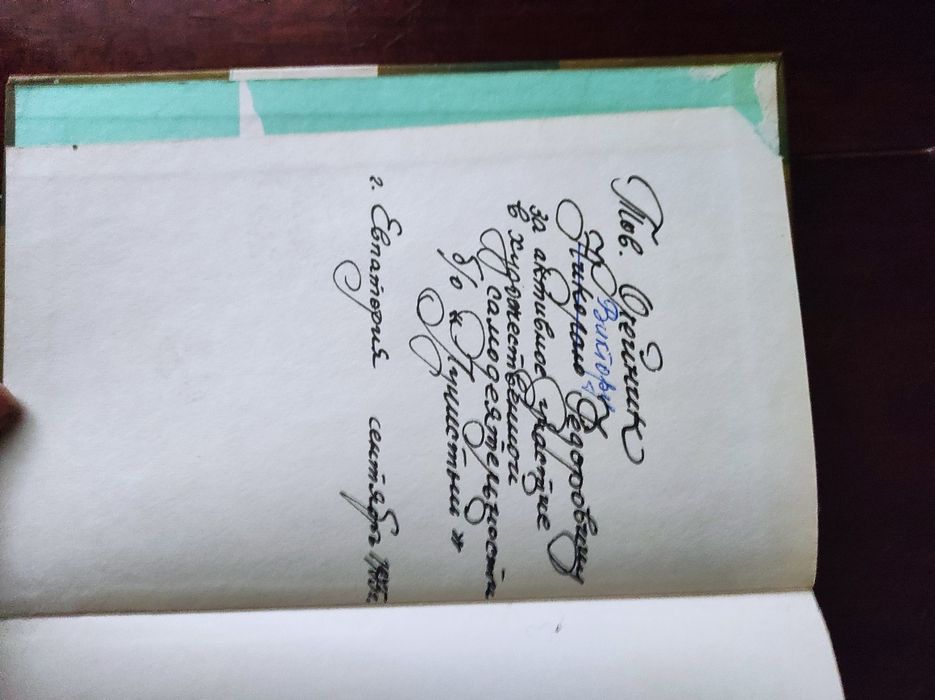 Тов. Олейник
Виктору
Николаю Федоровичу
за активное участие
в художественной
самодеятельности
б/о « Лучистый »
г. Евпатория сентябрь 1985г.